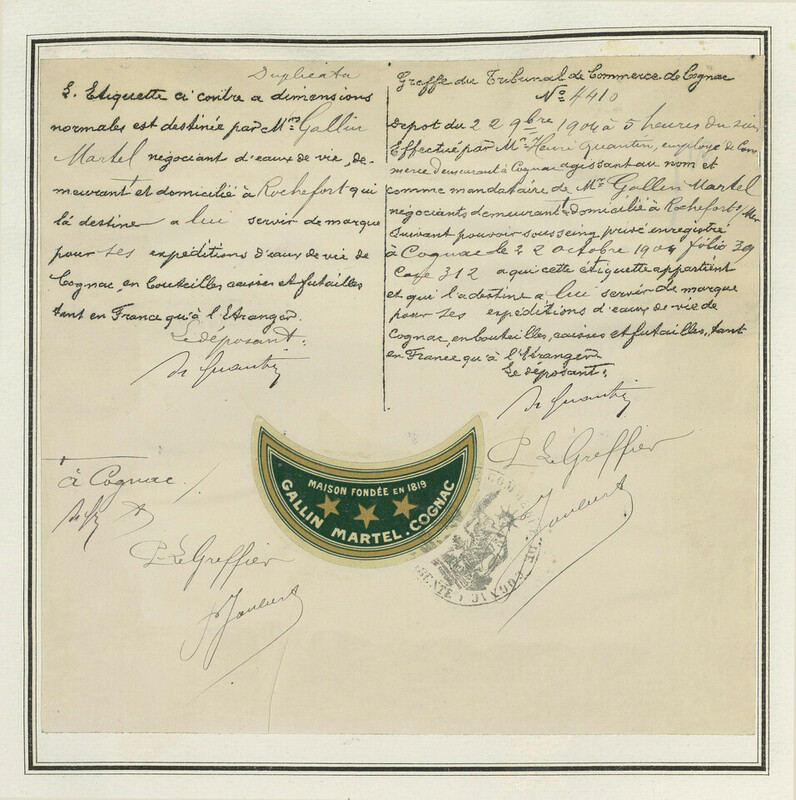 Duplicata
L. Etiquette ci contre a dimensions
normales est destinée par Mrs Gallin
Martel négociant d'eaux de vie, de-
meurant et domicilié à Rochefort qui
la destine a lui servir de marque
pour ses expéditions d'eaux de vie de
Cognac, en bouteilles caisses et futailles
tant en France qu'à l'Etranger.
Le déposant:
à Cognac
P. Le Greffier
Greffe du Tribunal de Commerce de Cognac
No 4410
Depot du 22 9bre 1904 à 5 heures du soir
Effectué par Mr Henri Quantin, employé de Com
merce demeurant à Cognac agissant au nom et
comme mandataire de Mrs Gallin Martel
négociants demeurant et domicilié à Rochefort s/Mer
Suivant pouvoir sous seing privé enregistré
à Cognac le 22 octobre 1904 folio 39
Case 312 a qui cette étiquette appartient
et qui l'a destine a lui servir de marque
pour ses expéditions d'eaux de vie de
Cognac, en bouteilles, caisses et futailles, tant
en France qu'à l'Etranger
Le déposant:
P. Le Greffier
MAISON FONDÉE EN 1819
GALLIN MARTEL. COGNAC